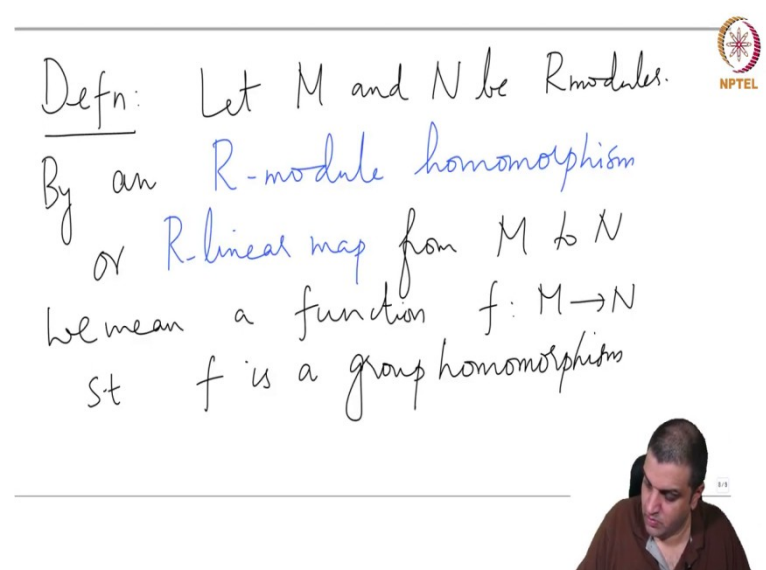 NPTEL
Defn: Let M and N be R modules.
By an R-module homomorphism
or R-linear map from M to N
we mean a function f: M→N
st f is a group homomorphism
5/9